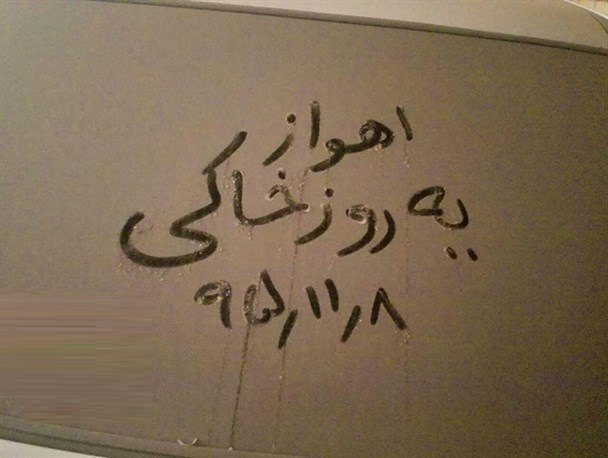 اهواز
یه روز خاکی
۹۵٫۱۱٫۸